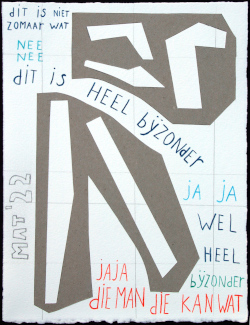 dit is niet
zomaar wat
NEE
NEE
dit is
HEEL bÿzonder
ja ja
WEL
HEEL
bÿzonder
jaja
die MAN die KAN WAT
MAT '22